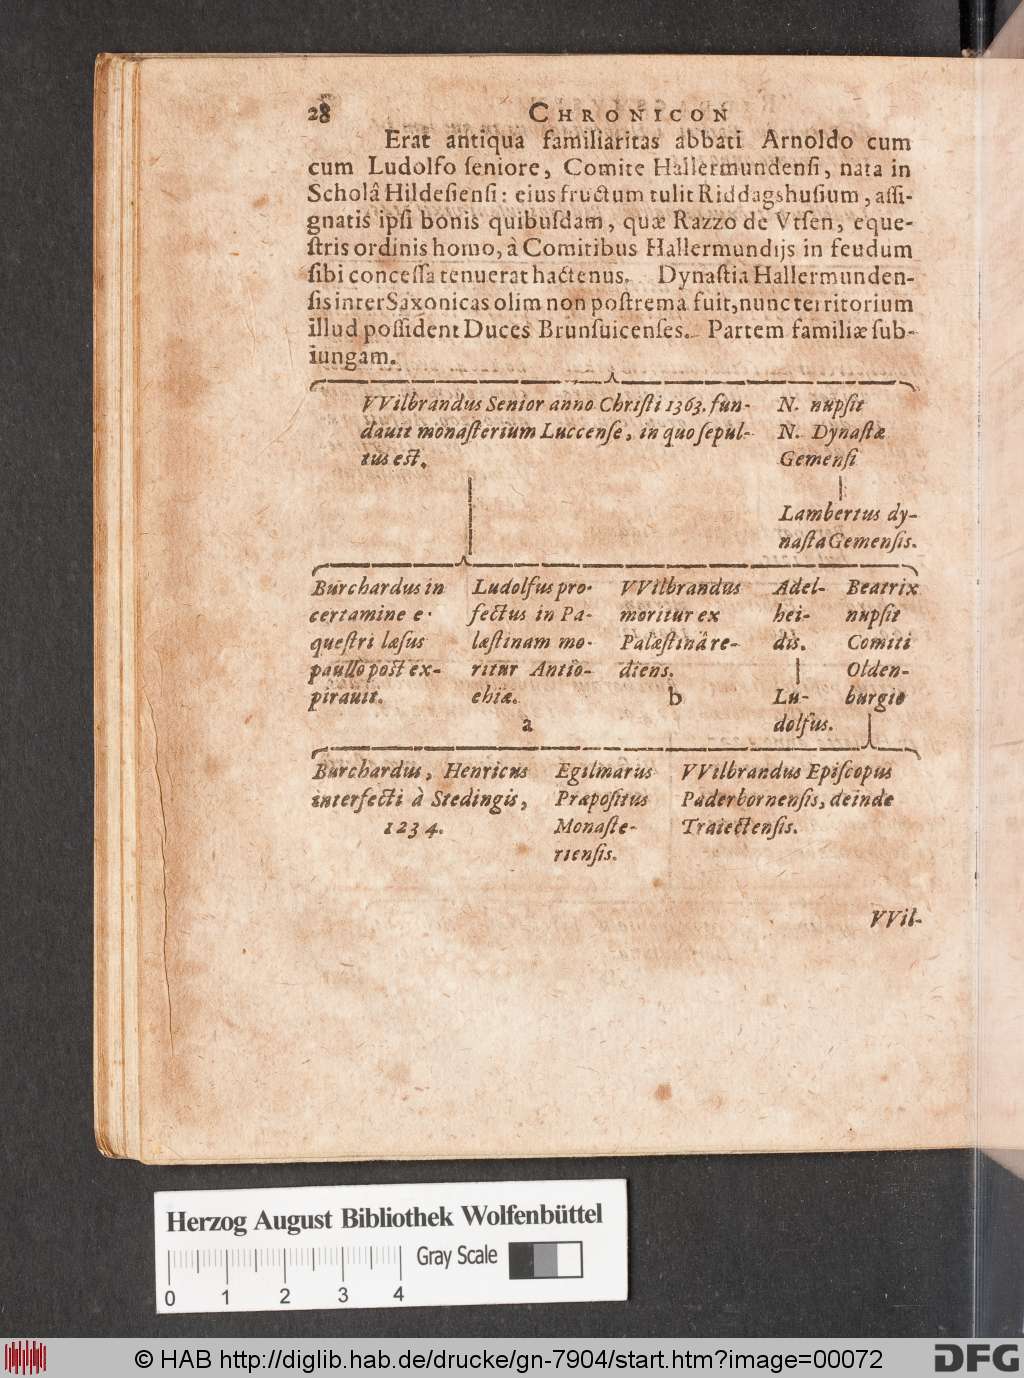 28 CHRONICON
Erat antiqua familiaritas abbati Arnoldo cum
cum Ludolfo ſeniore, Comite Hallermundenſi, nata in
Scholâ Hildeſienſi: eius fructum tulit Riddagshuſium, aſſi-
gnatis ipſi bonis quibuſdam, quæ Razzo de Vtſen, eque-
ſtris ordinis homo, à Comitibus Hallermundijs in feudum
ſibi conceſſa tenuerat hactenus. Dynaſtia Hallermunden-
ſis inter Saxonicas olim non poſtrema fuit, nunc territorium
illud poſſident Duces Brunſuicenſes. Partem familiæ ſub-
iungam.
VVilbrandus Senior anno Chriſti 1363. fun-
dauit monaſterium Luccenſe, in quo ſepul-
tus eſt.
N. nupſit
N. Dynaſtæ
Gemenſi
Lambertus dy-
naſta Gemenſis.
Burchardus in
certamine e-
queſtri læſus
paullo poſt ex-
pirauit.
Ludolfus pro-
fectus in Pa-
læſtinam mo-
ritur Antio-
chiæ.
a
VVilbrandus
moritur ex
Palæſtinâ re-
diens.
b
Adel-
hei-
dis.
Lu-
dolfus.
Beatrix
nupſit
Comiti
Olden-
burgio
Burchardus, Henricus
interfecti à Stedingis,
1234.
Egilmarus
Præpoſitus
Monaſte-
rienſis.
VVilbrandus Epiſcopus
Paderbornenſis, deinde
Traiectenſis.
VVil-
Herzog August Bibliothek Wolfenbüttel
Gray Scale
0 1 2 3 4
© HAB http://diglib.hab.de/drucke/gn-7904/start.htm?image=00072
DFG